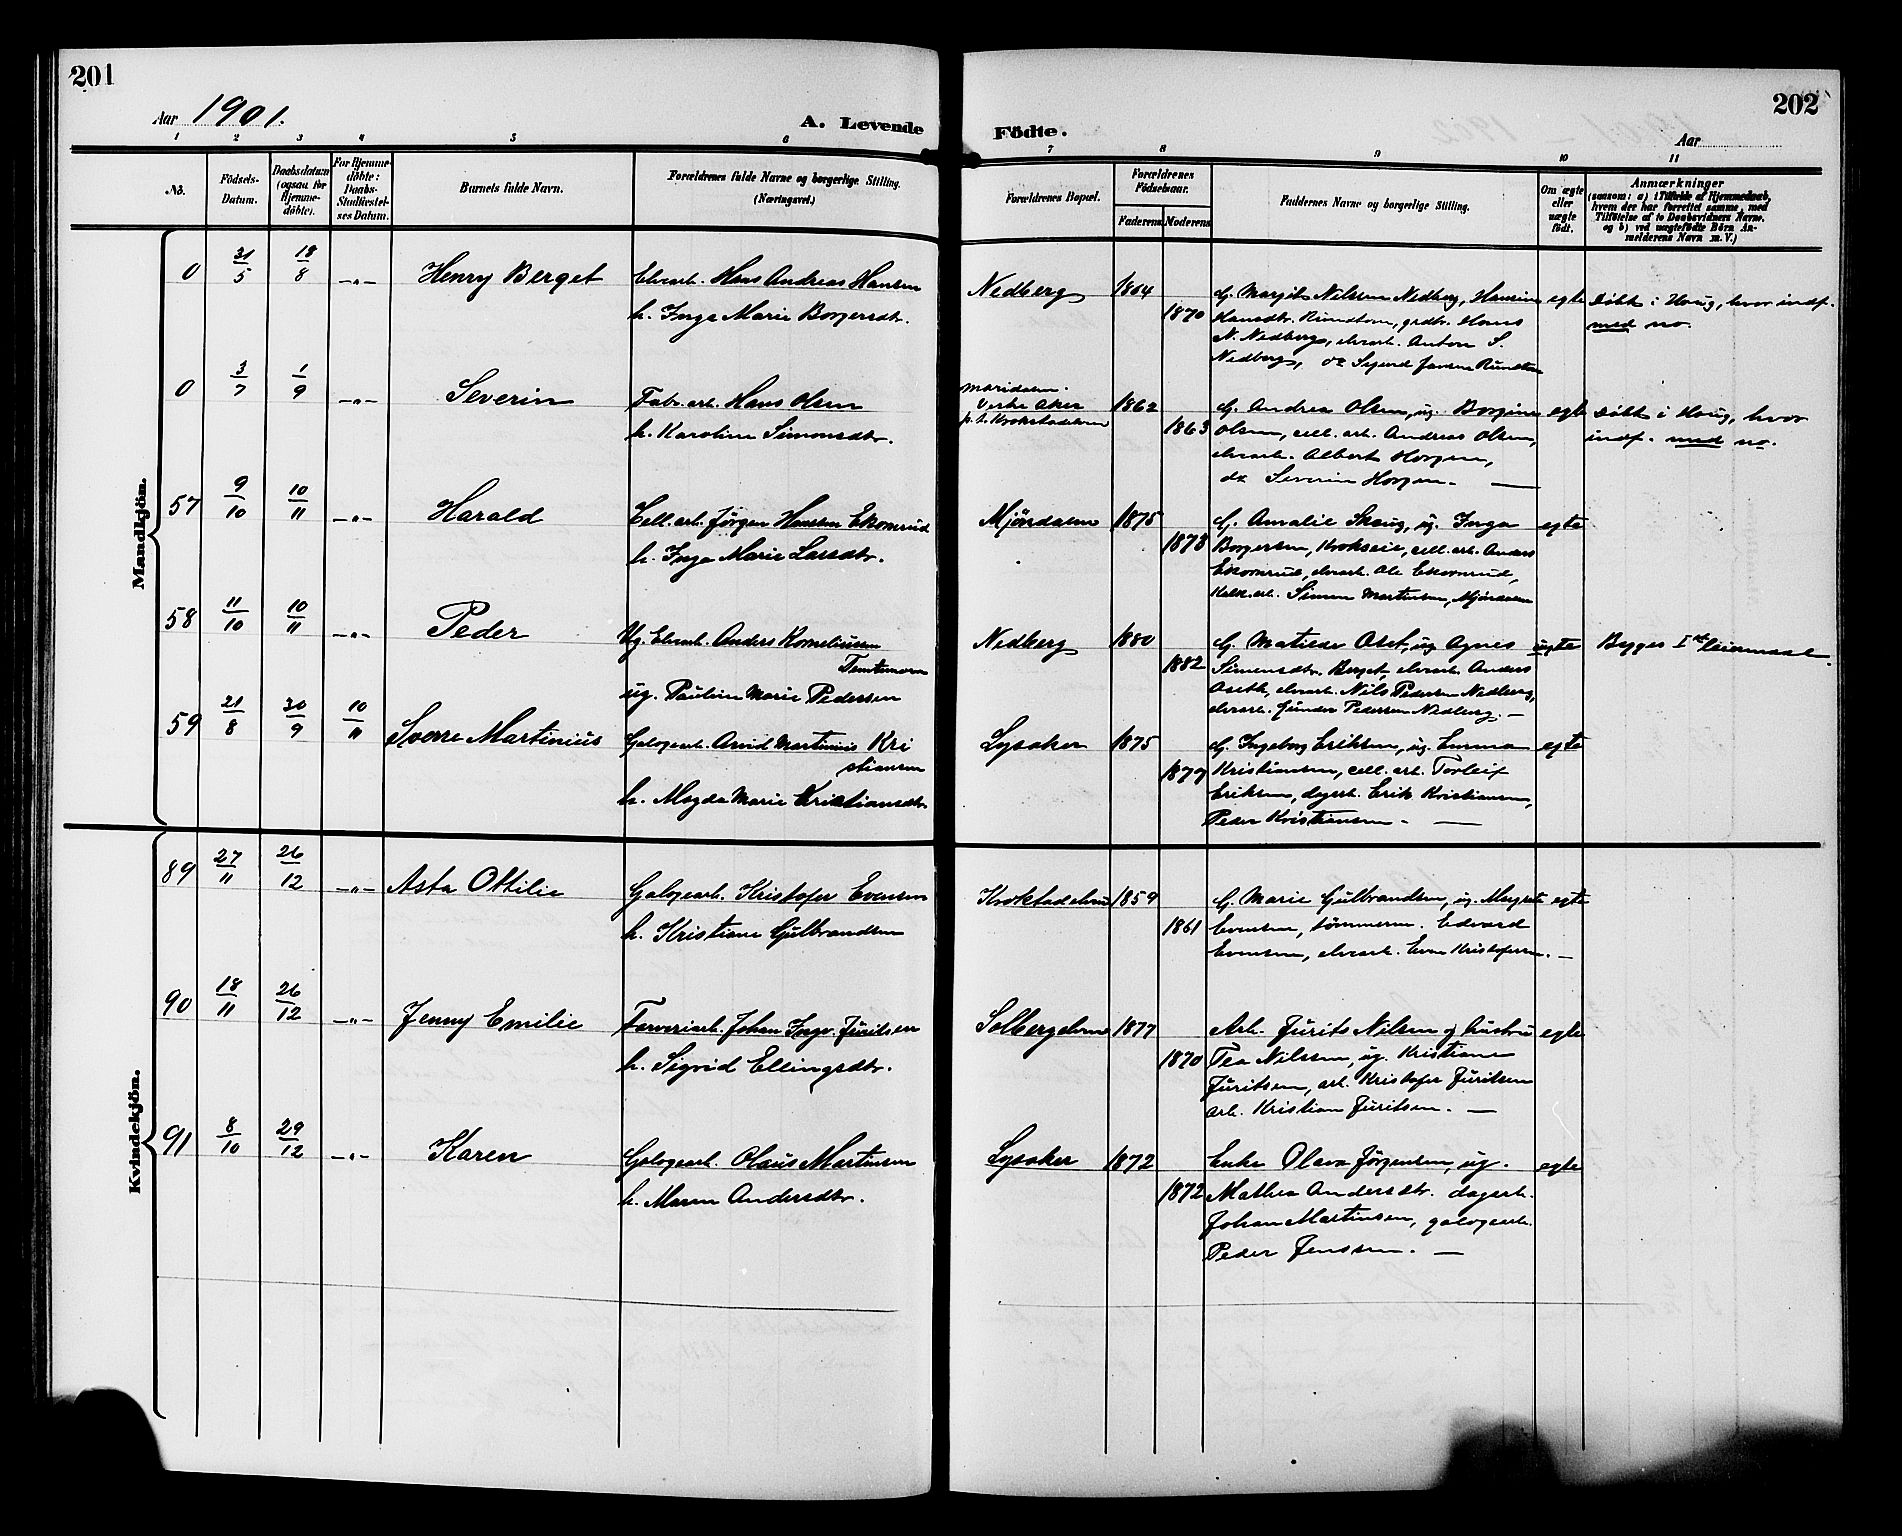 201
202
Aar 1901.
A. Levende
Födte.
Aar
1 2 3 4 5 6 7 8 9 10 11
No.
Födsels-
Datum.
Daabsdatum
(ogsaa for
Hjemme-
döbte).
For Hjemme-
döbte:
Daabs-
Stadfæstel-
ses Datum.
Barnets fulde Navn.
Forældrenes fulde Navne og borgerlige Stilling.
(Næringsvei.)
Forældrenes Bopæl.
Forældrenes
Födselsaar.
Faderens Moderens
Faddernes Navne og borgerlige Stilling.
Om ægte
eller
uægte
födt.
Anmærkninger
(saasom: a) i Tilfælde af Hjemmedaab,
hvem der har forrettet samme, med
Tilföielse af to Daabsvidners Navne.
og b) ved uægtefödte Börn An-
melderens Navn m. V.)
Mandkjön.
0 31/5 18/8 -„- Henry Berget Elvearb. Hans Andreas Hansen
h. Inga Marie Borgersdtr.
Nedberg 1864
1870
G. Margit Nilssen Nedberg, Hansine
Hansdtr. Rundtom, grdbr. Hans
N. Nedberg, elvearb. Anton S.
Nedberg, do Sigurd Jansen Rundtom
egte
Döbt i Houg, hvor indf.
med no.
0 3/7 1/9 -„- Severin Fabr. arb. Hans Olsen
h. Karoline Simonsdtr.
Maridalen
Vestre Aker
p. t. Krokstadelven
1862
1863
G. Andrea Olsen, ug. Borgine
Olsen, cell. arb. Andreas Olsen,
elvearb. Albert Horgen,
do Severin Horgen. —
egte
Döbt i Houg, hvor
indf. med no.
57 9/10 10/11 -„- Harald Cell. arb. Jørgen Hansen Ekornrud
h. Inga Marie Larsdtr.
Mjøndalen 1875
1878
G. Amalie Skaug, ug. Inga
Borgersen, Krokseie, cell. arb. Anders
Ekornrud, elvearb. Ole Ekornrud,
Kalk. arb. Simen Martinsen, Mjøndalen
egte
58 11/10 10/11 -„- Peder Ug. Elvearb. Anders Korneliussen
Temtemoen
ug. Pauline Marie Pedersen
Nedberg 1880
1882
G. Matilde Aset, ug Agnes
Simensdtr. Berget, elvearb. Anders
Aseth, elvearb. Nils Pedersen Nedberg,
elvearb. Gunder Pedersen Nedberg. —
uegte
Begges 1ste leiermaal.
59 21/8 30/9 10/11 Sverre Martinius Galogearb. Arvid Martinius Kri
stiansen
h. Magda Marie Kristiansdtr.
Lysaker 1875
1877
G. Ingeborg Eriksen, ug. Emma
Kristiansen, cell. arb. Torleif
Eriksen, dagarb. Erik Kristiansen,
Peder Kristiansen. —
egte
Kvindekjön.
89 27/11 26/12 -„- Asta Ottilie Galogearb. Kristofer Evensen
h. Kristiane Gulbrandsen
Krokstadelven 1859
1861
G. Marie Gulbrandsen, ug. Magrete
Evensen, tømmerm. Edvard
Evensen, elvearb. Even Kristofersen. —
egte
90 18/11 26/12 -„- Jenny Emilie Farveriarb. Johan Ingv. Juritsen
h. Sigrid Ellingsdtr.
Solbergelven 1877
1870
Arb. Jurits Nilsen og hustru
Tea Nilssen, ug. Kristiane
Juritsen, arb. Kristofer Juritsen
arb. Kristian Juritsen. —
egte
91 8/10 29/12 -„- Karen Galogearb. Olaus Martinsen
h. Maren Andersdtr.
Lysaker 1872
1872
Enke Olava Jørgensen, ug.
Mathea Andersdtr. dagarb.
Johan Martinsen, galogearb.
Peder Jenssen. —
egte